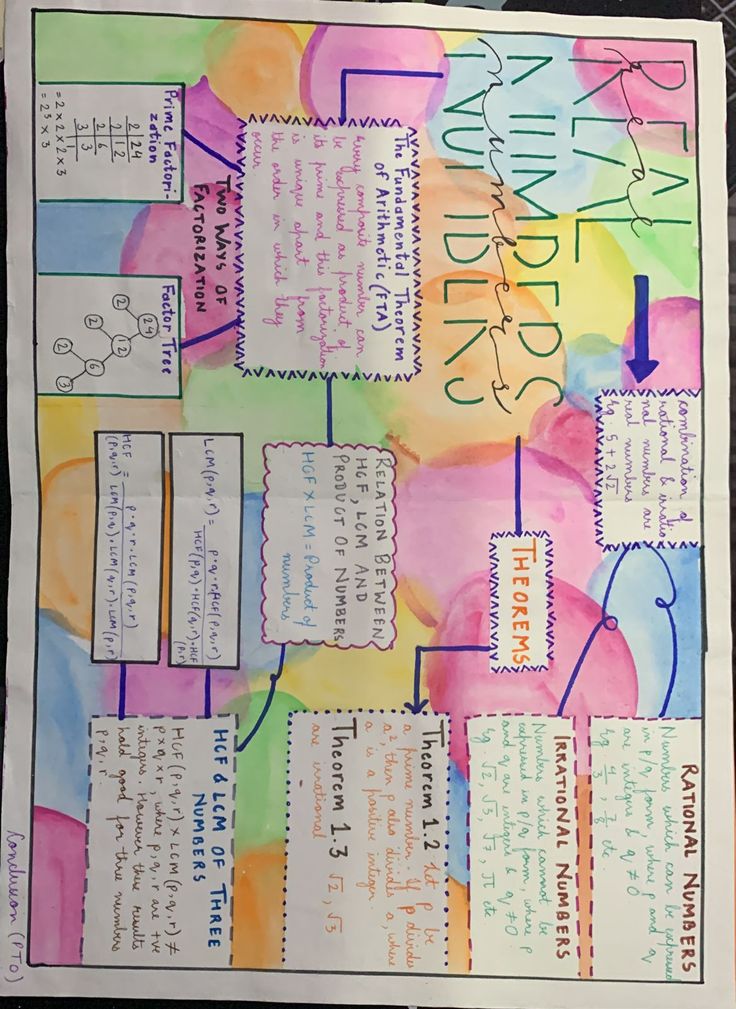 REAL
real
NUMBERS
numbers
combination of
rational & irratio
nal numbers are
real numbers
Eg. 5 + 2√2
RATIONAL NUMBERS
Numbers which can be expressed
in p/q form, where p and q
are integers & q ≠ 0
Eg 4/3, 7/8 etc.
IRRATIONAL NUMBERS
Numbers which cannot be
expressed in p/q form, where p
and q are integers & q ≠ 0.
Eg √2, √3, √7, π etc
THEOREMS
Theorem 1.2 Let p be
a prime number. If p divides
a², then p also divides a, where
a is a positive integer.
Theorem 1.3 √2, √3
are irrational
The Fundamental Theorem
of Arithmetic (FTA)
Every composit number can
be expressed as product of
its prime and this factorization
is unique apart from
the order in which they
occur
TWO WAYS OF
FACTORIZATION
Prime Factori-
zation
2 24
2 12
2 6
3 3
1
= 2 × 2 × 2 × 3
= 2³ × 3
Factor Tree
24
2 12
2 6
2 3
RELATION BETWEEN
HCF, LCM AND
PRODUCT OF NUMBERS
HCF × LCM = Product of
numbers
LCM(p,q,r) = p·q·r·HCF(p,q,r)
HCF(p,q)·HCF(q,r)·HCF
(p,r)
HCF = p·q·r·LCM(p,q,r)
(p,q,r) LCM(p,q)·LCM(q,r)·LCM(p,r)
HCF & LCM OF THREE
NUMBERS
HCF(p,q,r) × LCM(p,q,r) ≠
p×q×r, where p,q,r are +ve
integers. However these results
hold good for three numbers
p,q,r.
Conclusion (PTO)